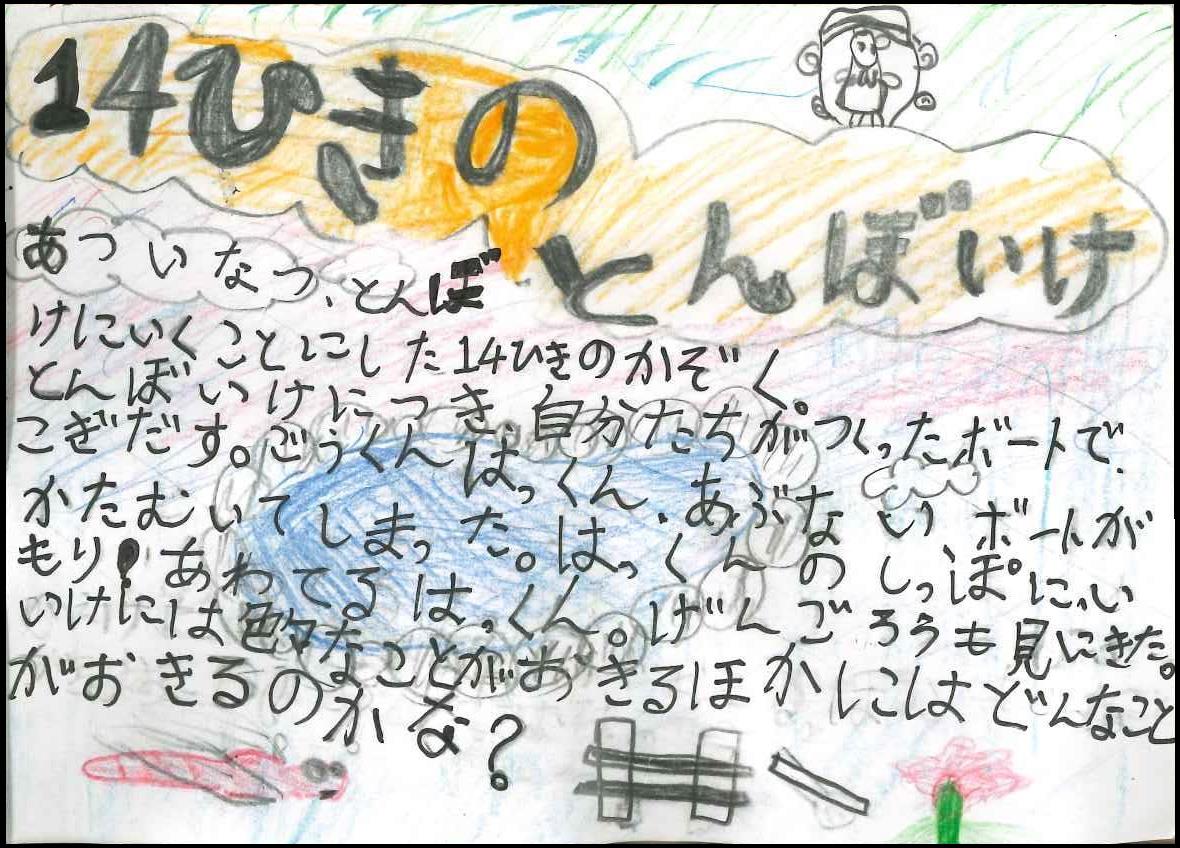 14ひきの
とんぼいけ
あつい なつ、とんぼ
けにいくことにした14ひきのかぞく。
とんぼいけにつき、自分たちがつくったボートで、
こぎだす。ごうくんはっくん、あぶない、ボートが
かたむいてしまった。はっくんのしっぽに、い
もり!あわてるはっくん。げんごろうも見にきた。
いけには色々なことがおきるほかにはどんなこと
がおきるのかな?